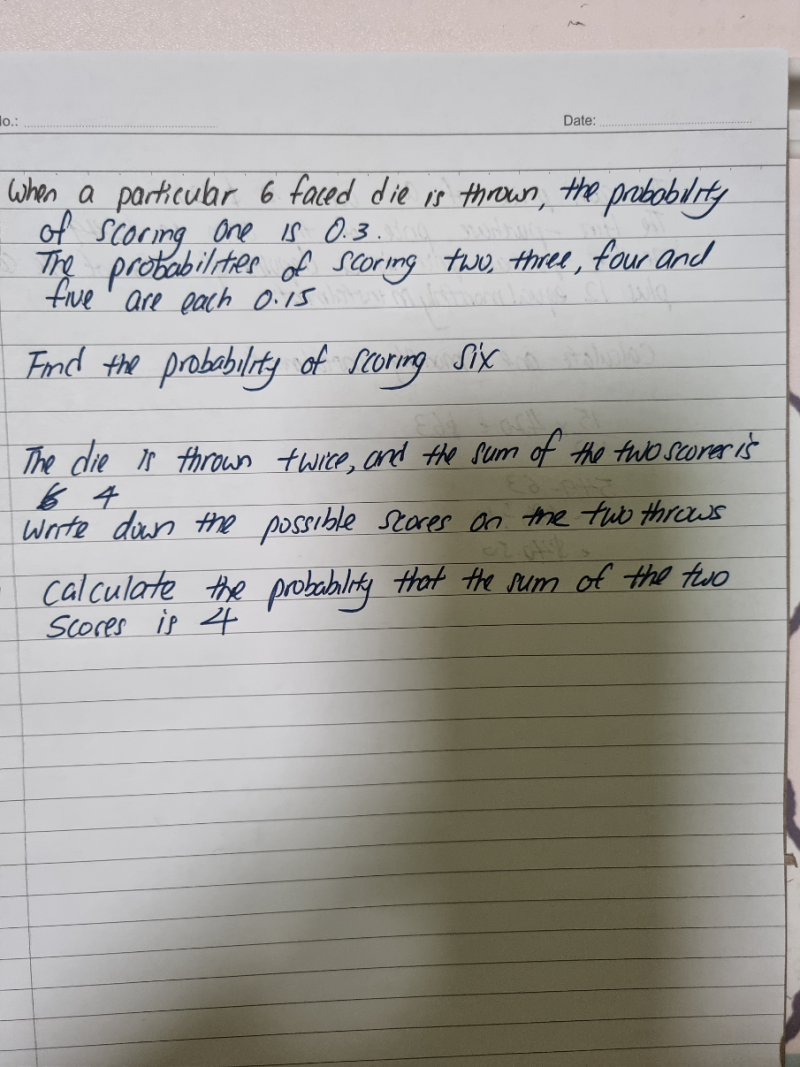 No.:
Date:
When a particular 6 faced die is thrown, the probability
of scoring one is 0.3.
The probabilities of scoring two, three, four and
five are each 0.15
Find the probability of scoring six
The die is thrown twice, and the sum of the two scores is
4
Write down the possible scores on the two throws
Calculate the probability that the sum of the two
scores is 4